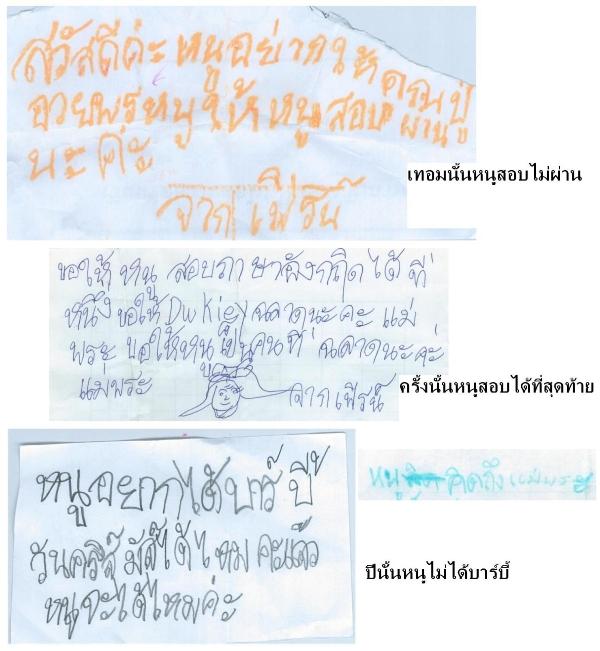 สวัสดีค่ะ หนูอยากให้คุณปู่
อวยพรหนูให้หนูสอบผ่าน
นะค่ะ
จากเฟิร์น
เทอมนั้นหนูสอบไม่ผ่าน
ขอให้ หนู สอบภาษาอังกฤษได้ ที่
หนึ่ง ขอให้ ฉลาดนะคะ แม่
พระ ขอให้หนูเป็นคนที่ ฉลาดนะค่ะ
แม่พระ จากเฟิร์น
ครั้งนั้นหนูสอบได้ที่สุดท้าย
หนู คิดถึงแม่พระ
หนูอยากได้บาร์บี้
วันคริสมัสได้ไหมคะแล้ว
หนูจะได้ไหมค่ะ
ปีนั้นหนูไม่ได้บาร์บี้